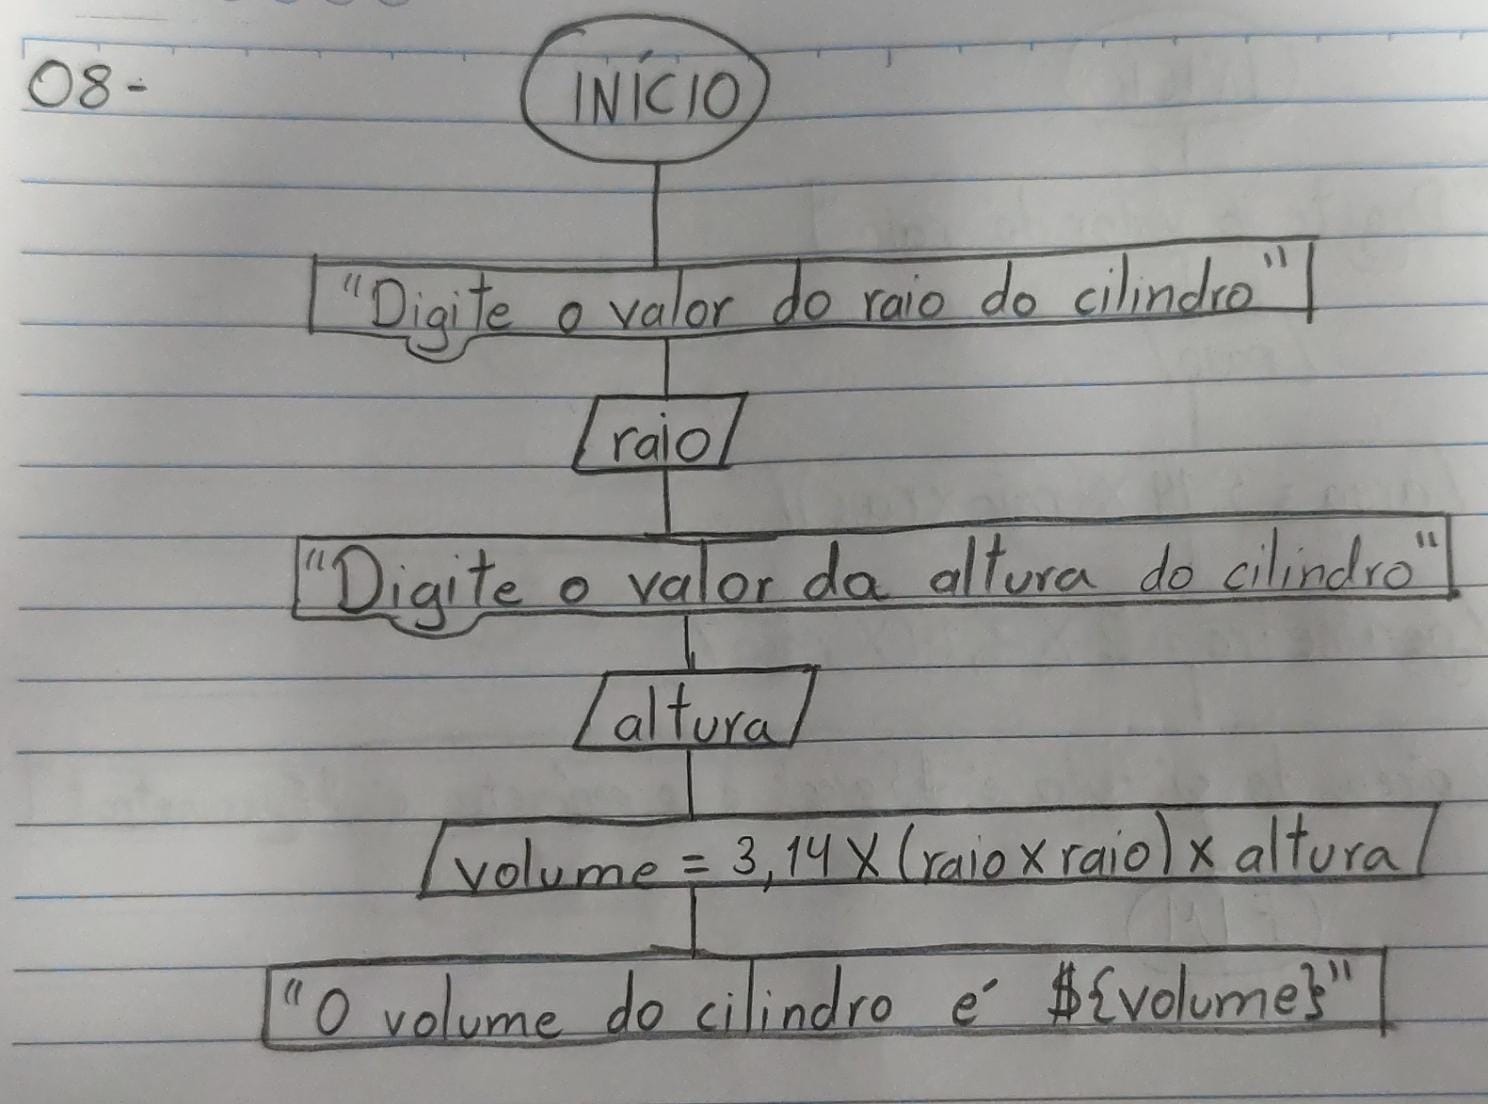 08-
INÍCIO
"Digite o valor do raio do cilindro"
raio
"Digite o valor da altura do cilindro"
altura
volume = 3,14 X (raio x raio) x altura
"O volume do cilindro é ${volume}"